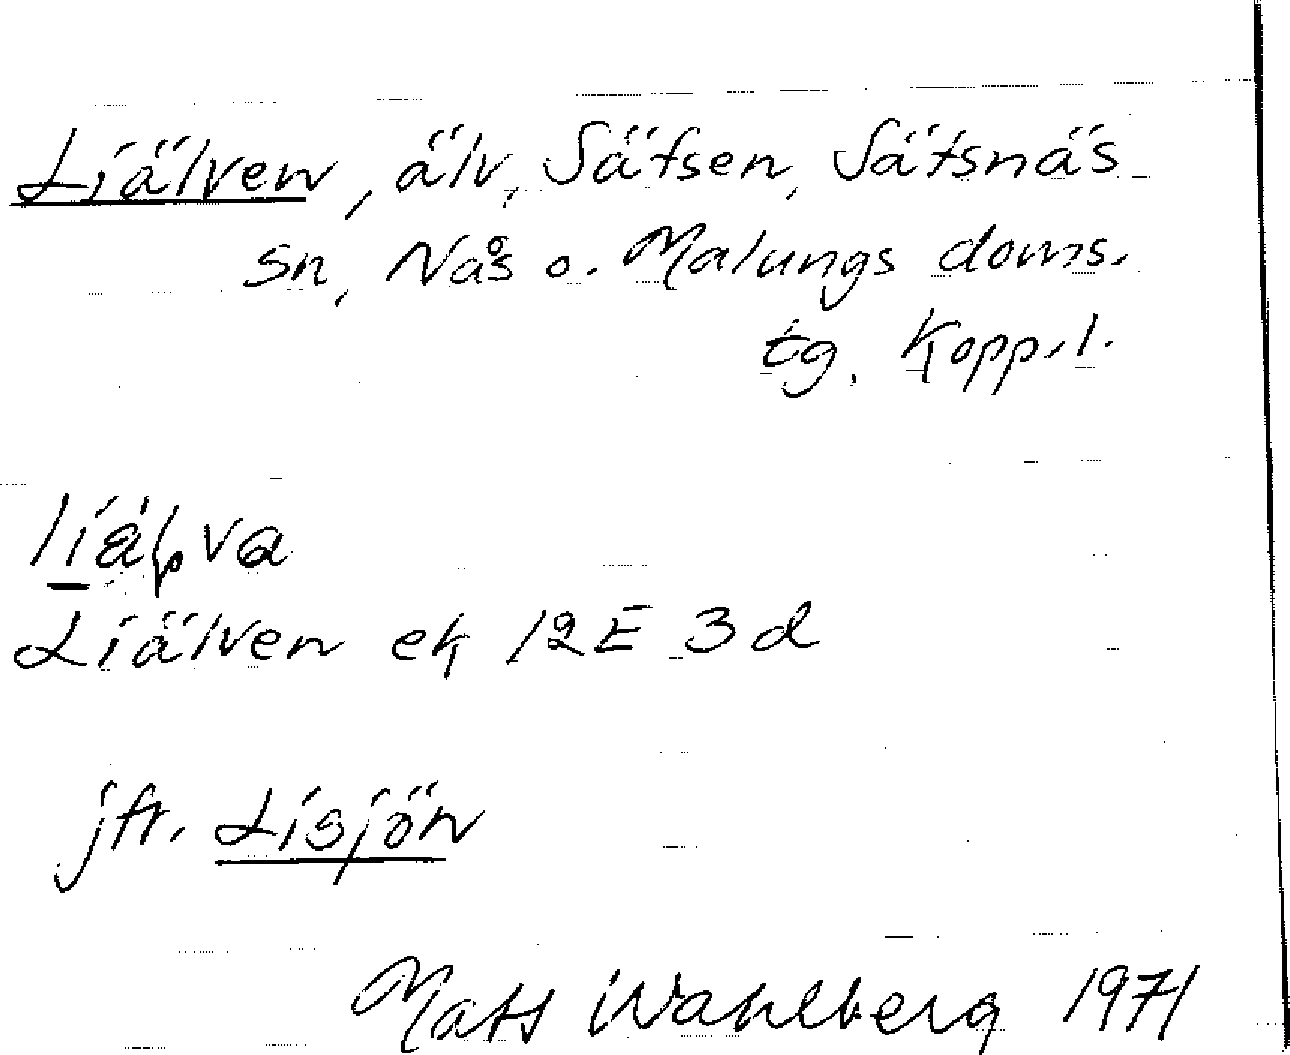 Liälven, älv, Säfsen, Säfsnäs
sn, Nås o. Malungs doms.
tg. Kopp. l.
Liälven ek 12E 3d
jfr. Lisjön
Mats Wahlberg 1971